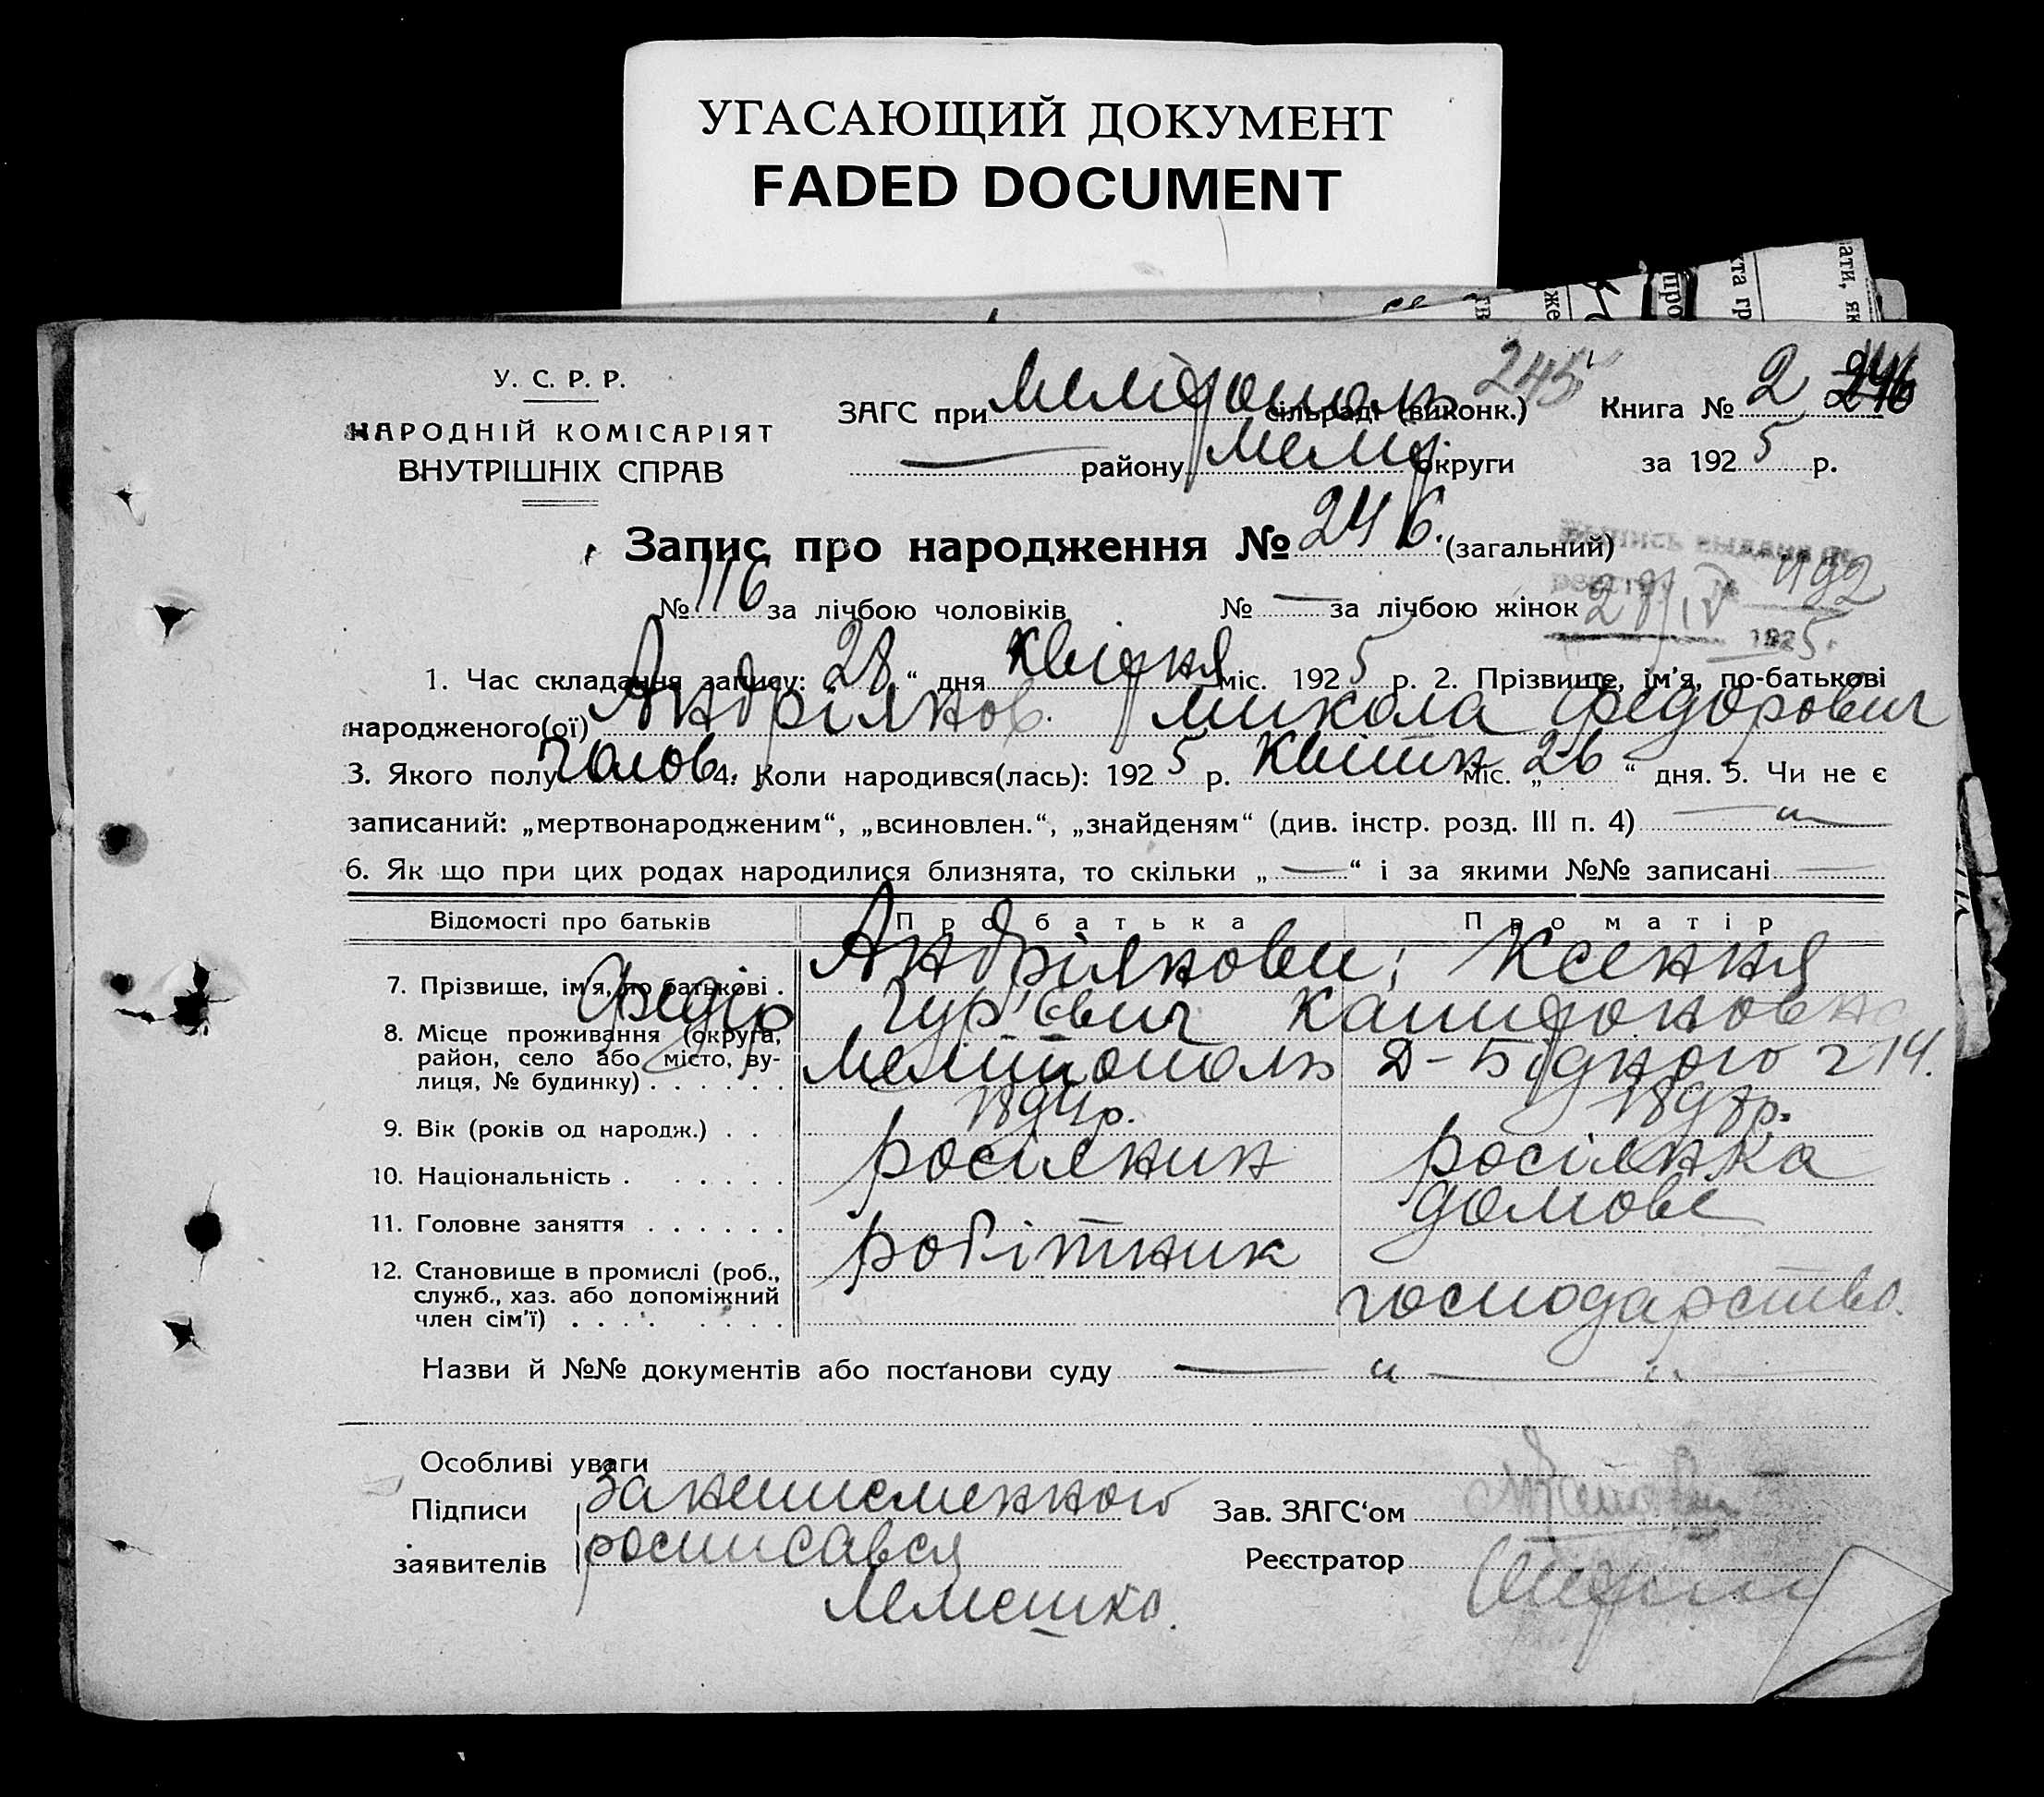 УГАСАЮЩИЙ ДОКУМЕНТ
FADED DOCUMENT
У. С. Р. Р.
НАРОДНІЙ КОМІСАРІЯТ
ВНУТРІШНІХ СПРАВ
ЗАГС при Мелітополь сільраді (виконк.) 245 Книга № 2 246
— району Меліт. округи за 1925 р.
Запис про народження № 246. (загальний)
№ 116 за лічбою чоловіків № — за лічбою жінок
выдана по
реестру № 492
28/IV 1925 г.
1. Час складання запису: 28 “ дня квітня міс. 1925 р. 2. Прізвище, ім’я, по-батькові
народженого(ої) Андріянов. Микола Федорович
3. Якого полу чолов. 4. Коли народився(лась): 1925 р. Квітня міс. „ 26 “ дня. 5. Чи не є
записаний: „мертвонародженим“, „всиновлен.“, „знайденям“ (див. інстр. розд. III п. 4) — „ —
6. Як що при цих родах народилися близнята, то скільки „ — “ і за якими №№ записані —
Відомості про батьків Про батька Про матір
7. Прізвище, ім’я, по батькові . Андріянови; Ксенія
Федір Гур'євич
8. Місце проживання (округа,
район, село або місто, ву-
лиця, № будинку) . . . . . . Мелітополь Д-Бідного 214.
9. Вік (років од народж.) . . 1894р. 1897р.
10. Національність . . . . . . росіянин росіянка
11. Головне заняття . . . . . . робітник домове
12. Становище в промислі (роб.,
служб., хаз. або допоміжний
член сім’ї) . . . . . . . . господарство.
Назви й №№ документів або постанови суду — „ — „ —
Особливі уваги
Підписи За неписменного Зав. ЗАГС‘ом
заявителів росписався Реєстратор
Лемешко.